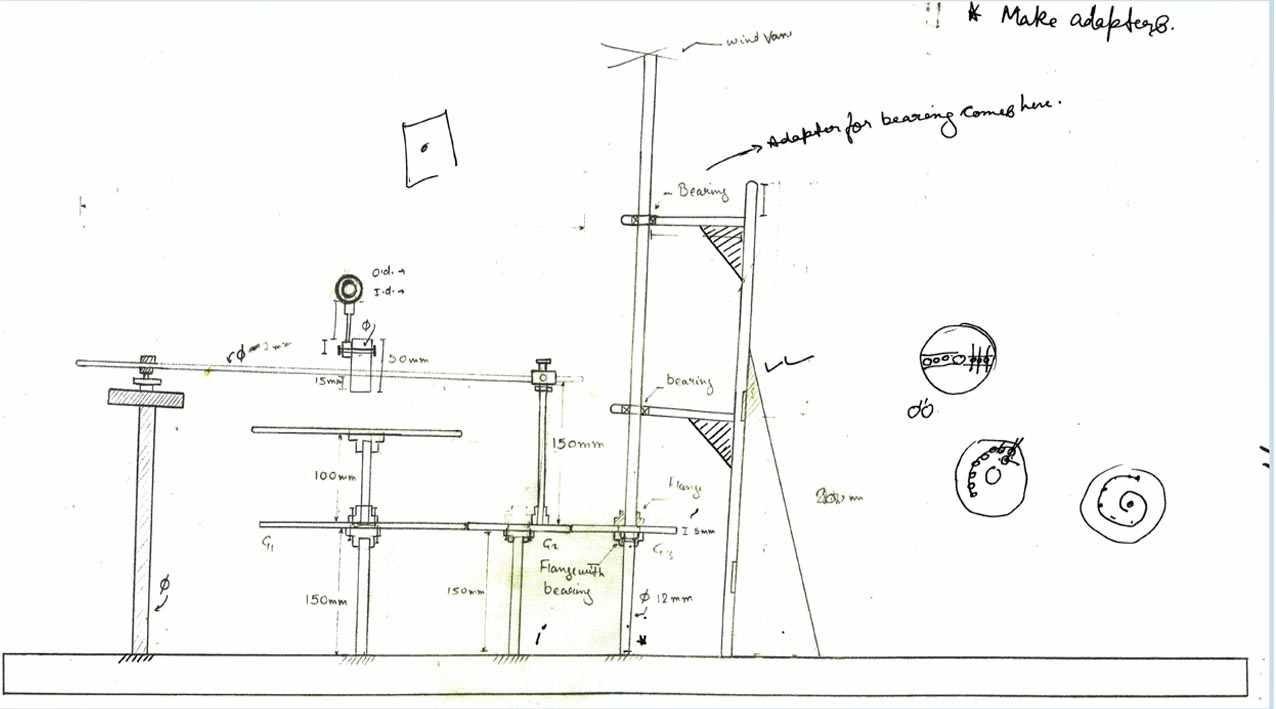 * Make adapters.
wind Vane
Adapter for bearing comes here.
Bearing
O.d. →
I.d. →
ϕ
ϕ
I
50mm
15mm
bearing
150mm
100mm
Flange
I 5mm
G1
G2
G3
Flange with
bearing
150mm
150mm
ϕ 12mm
ϕ
*